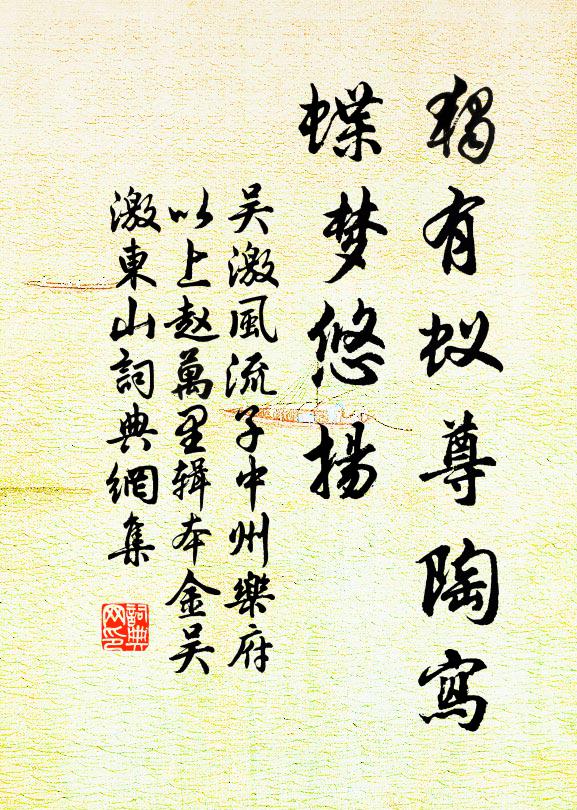 獨有蚁尊陶寫
蝶梦悠揚
吴激風流子中州樂府
以上赵萬里辑本金吴
激東山詞典網集
詞典
网印